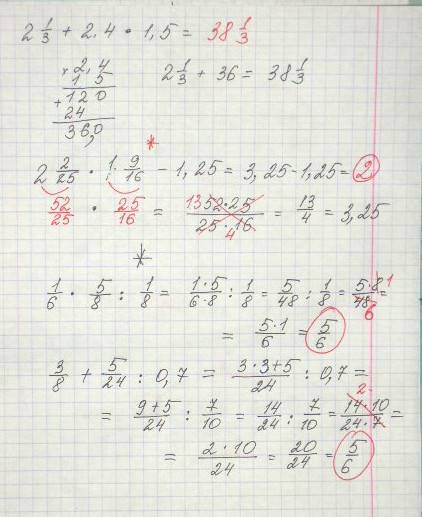 2 1/3 + 2,4 · 1,5 = 38 1/3
× 2,4
1 5
2 1/3 + 36 = 38 1/3
+ 120
24
36,0
*
2 2/25 · 1 9/16 − 1,25 = 3,25 − 1,25 = 2
52/25 · 25/16 = 13 52·25/25·16 4 = 13/4 = 3,25
*
1/6 · 5/8 : 1/8 = 1·5/6·8 : 1/8 = 5/48 : 1/8 = 5·8 1/48 6 =
= 5·1/6 = 5/6
3/8 + 5/24 : 0,7 = 3·3+5/24 : 0,7 =
= 9+5/24 : 7/10 = 14/24 : 7/10 = 2 14·10/24·7 =
= 2·10/24 = 20/24 = 5/6